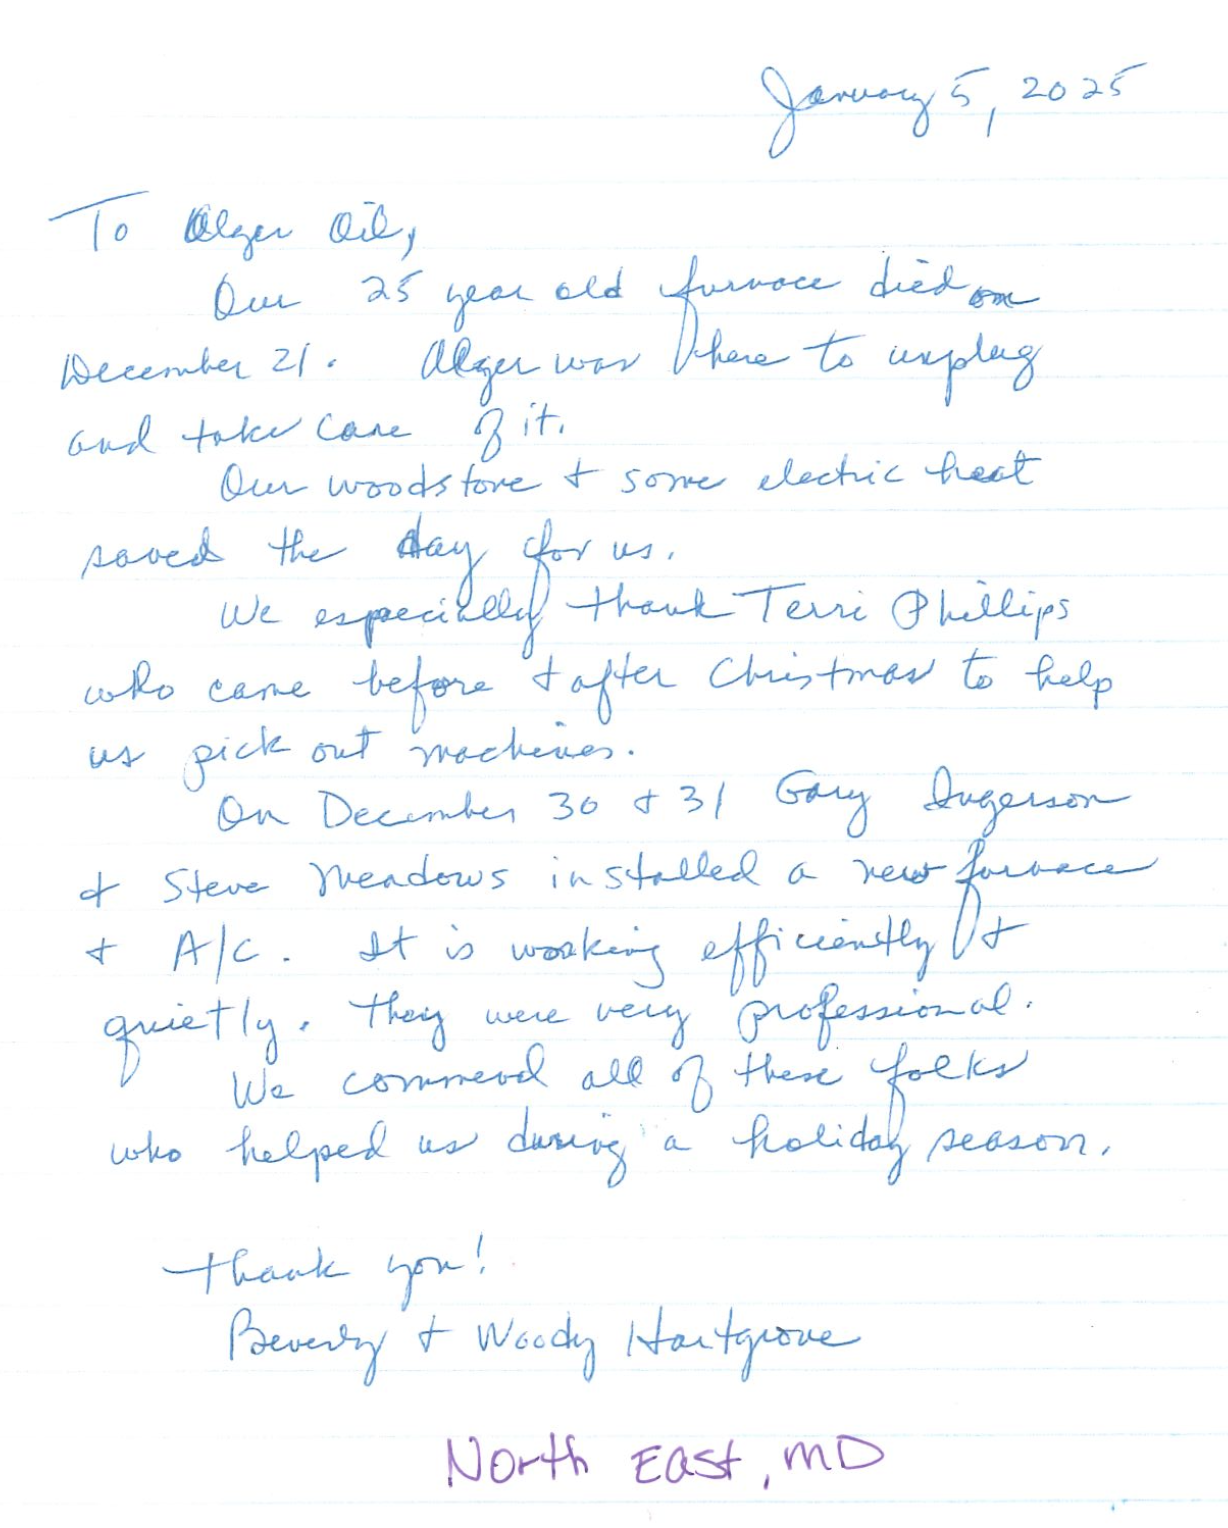 January 5, 2025
To Alger Oil,
Our 25 year old furnace died on
December 21. Alger was here to unplug
and take care of it.
Our woodstove + some electric heat
saved the day for us.
We especially thank Terri Phillips
who came before + after Christmas to help
us pick out machines.
On December 30 + 31 Gary Ingerson
+ Steve Meadows installed a new furnace
+ A/C. It is working efficiently +
quietly. They were very professional.
We commend all of these folks
who helped us during a holiday season.
Thank you!
Beverly + Woody Hartgrove
North East, MD